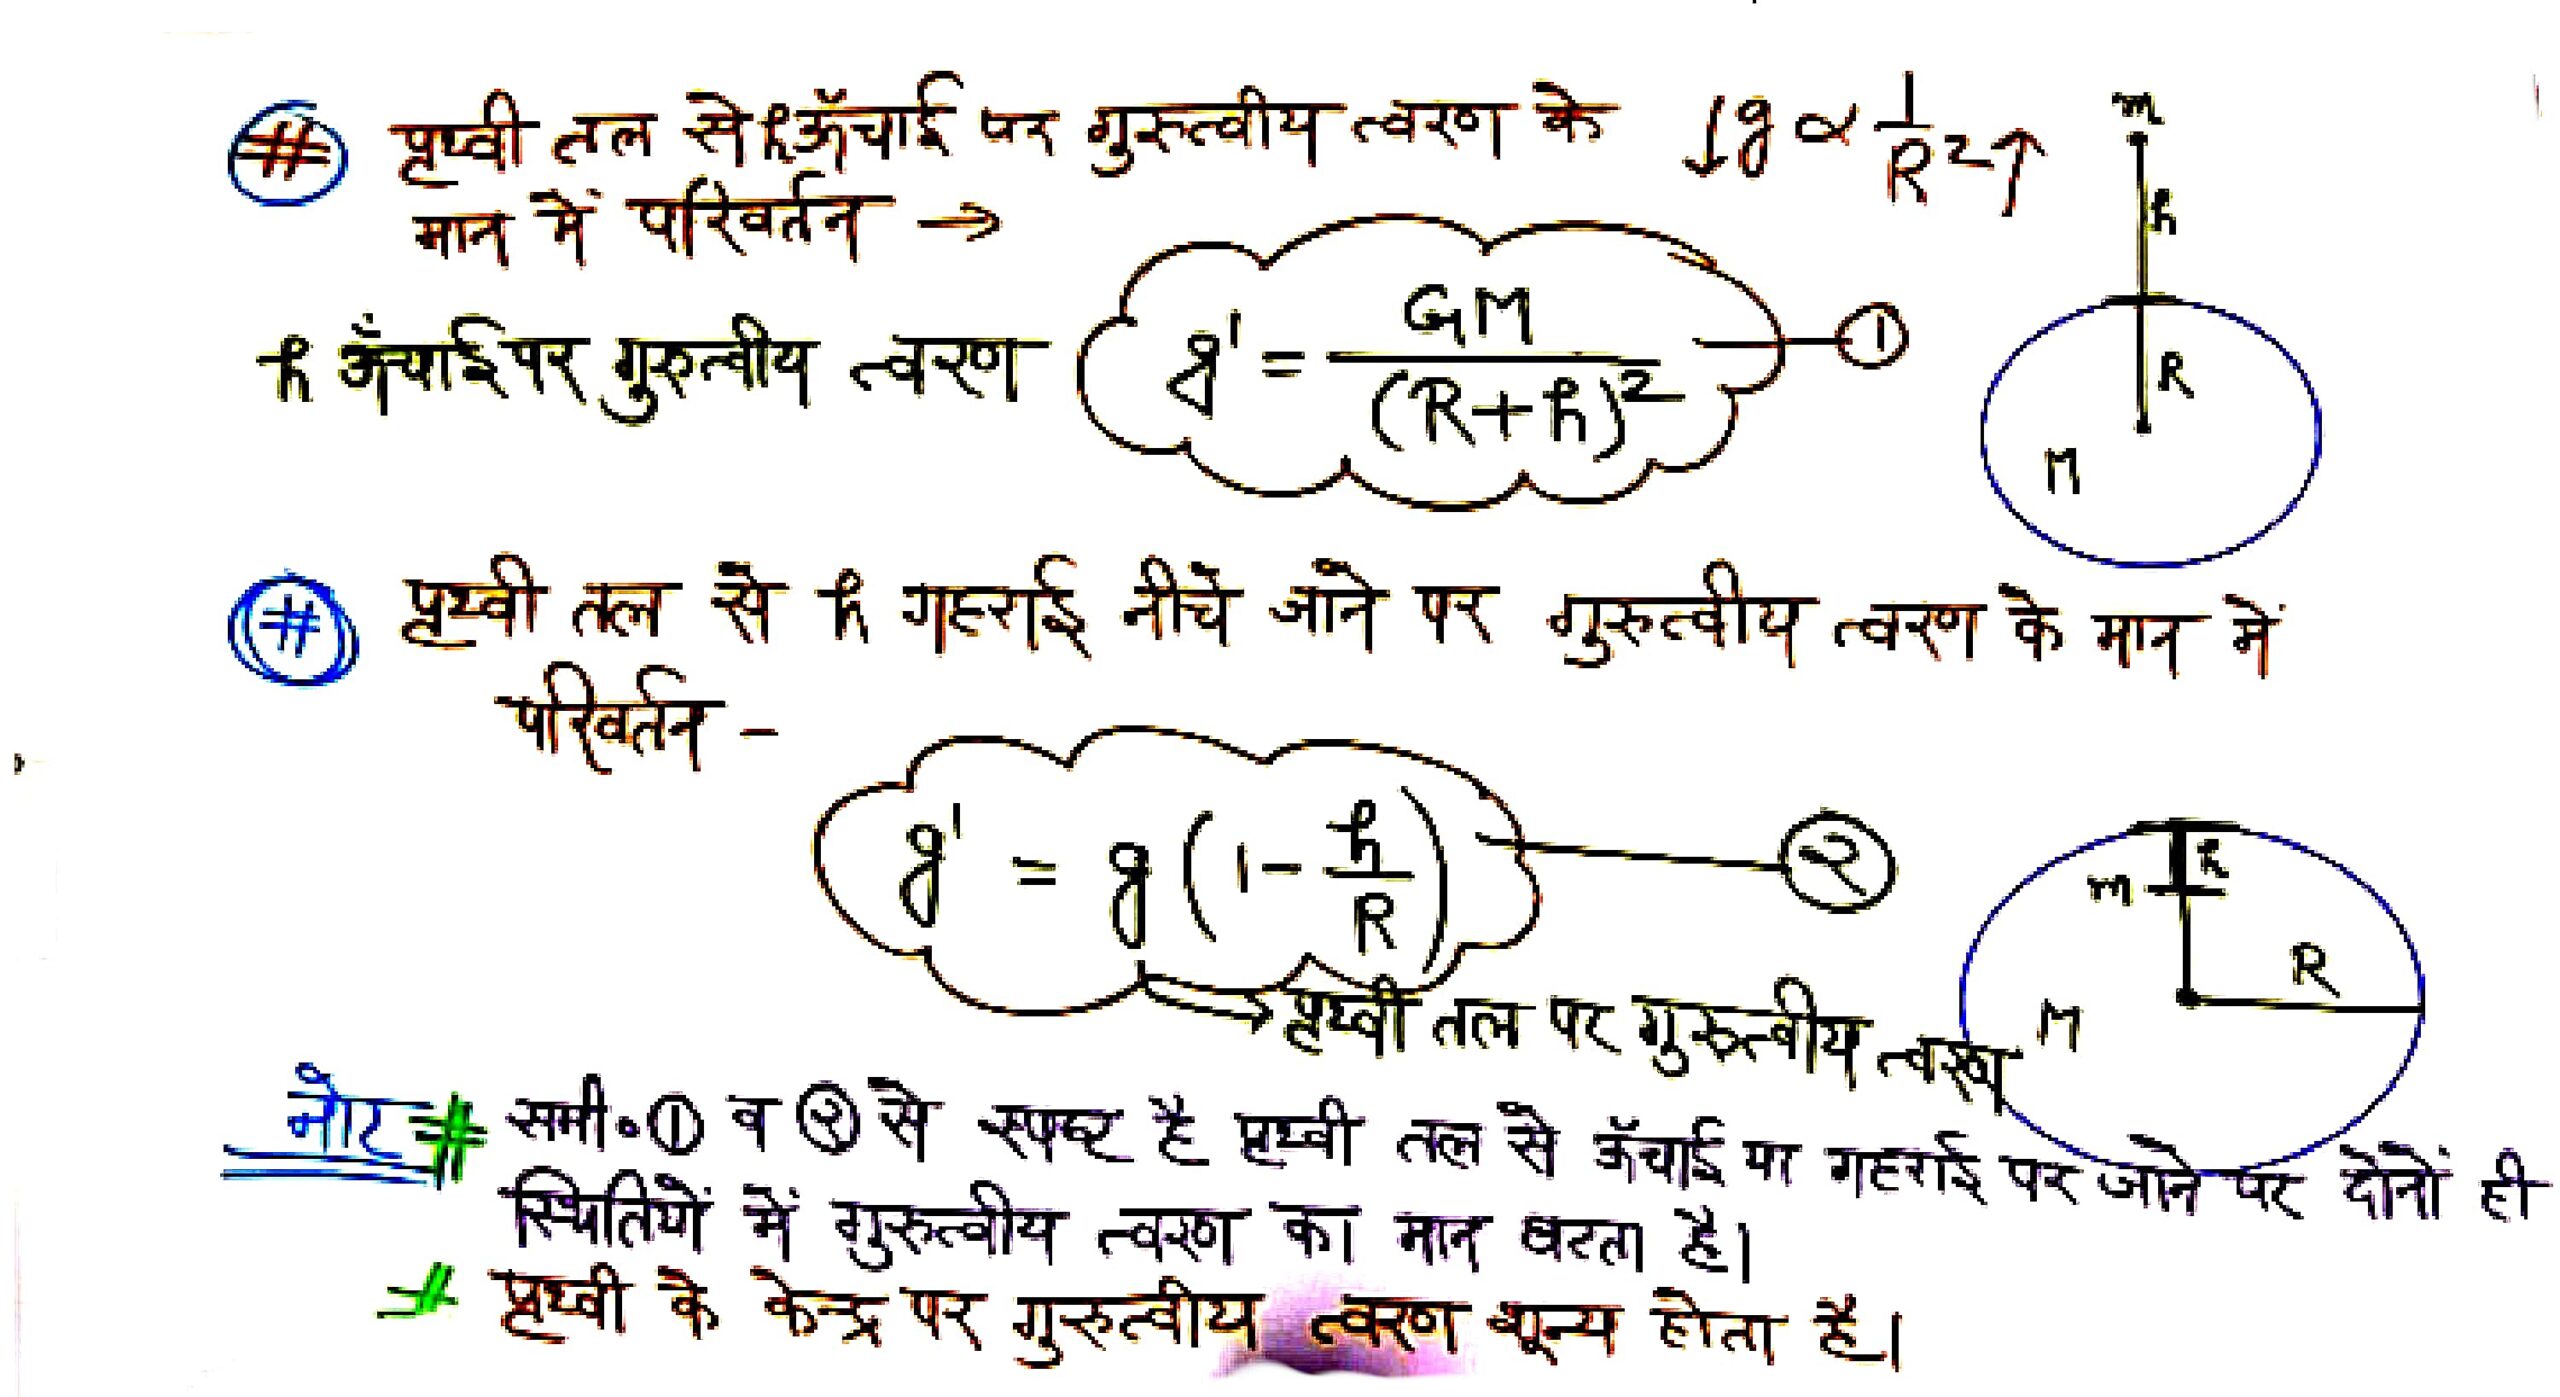 # पृथ्वी तल से h ऊँचाई पर गुरुत्वीय त्वरण के ↓g ∝ 1/R²↑
मान में परिवर्तन →
h ऊँचाई पर गुरुत्वीय त्वरण g' = GM/(R+h)² — ①
m
h
R
M
# पृथ्वी तल से h गहराई नीचे जाने पर गुरुत्वीय त्वरण के मान में
परिवर्तन -
g' = g(1 - h/R) — ②
→ पृथ्वी तल पर गुरुत्वीय त्वरण
h
m
R
M
नोट # समी. ① व ② से स्पष्ट है पृथ्वी तल से ऊँचाई या गहराई पर जाने पर दोनों ही
स्थितियों में गुरुत्वीय त्वरण का मान घटता है।
# पृथ्वी के केन्द्र पर गुरुत्वीय त्वरण शून्य होता है।